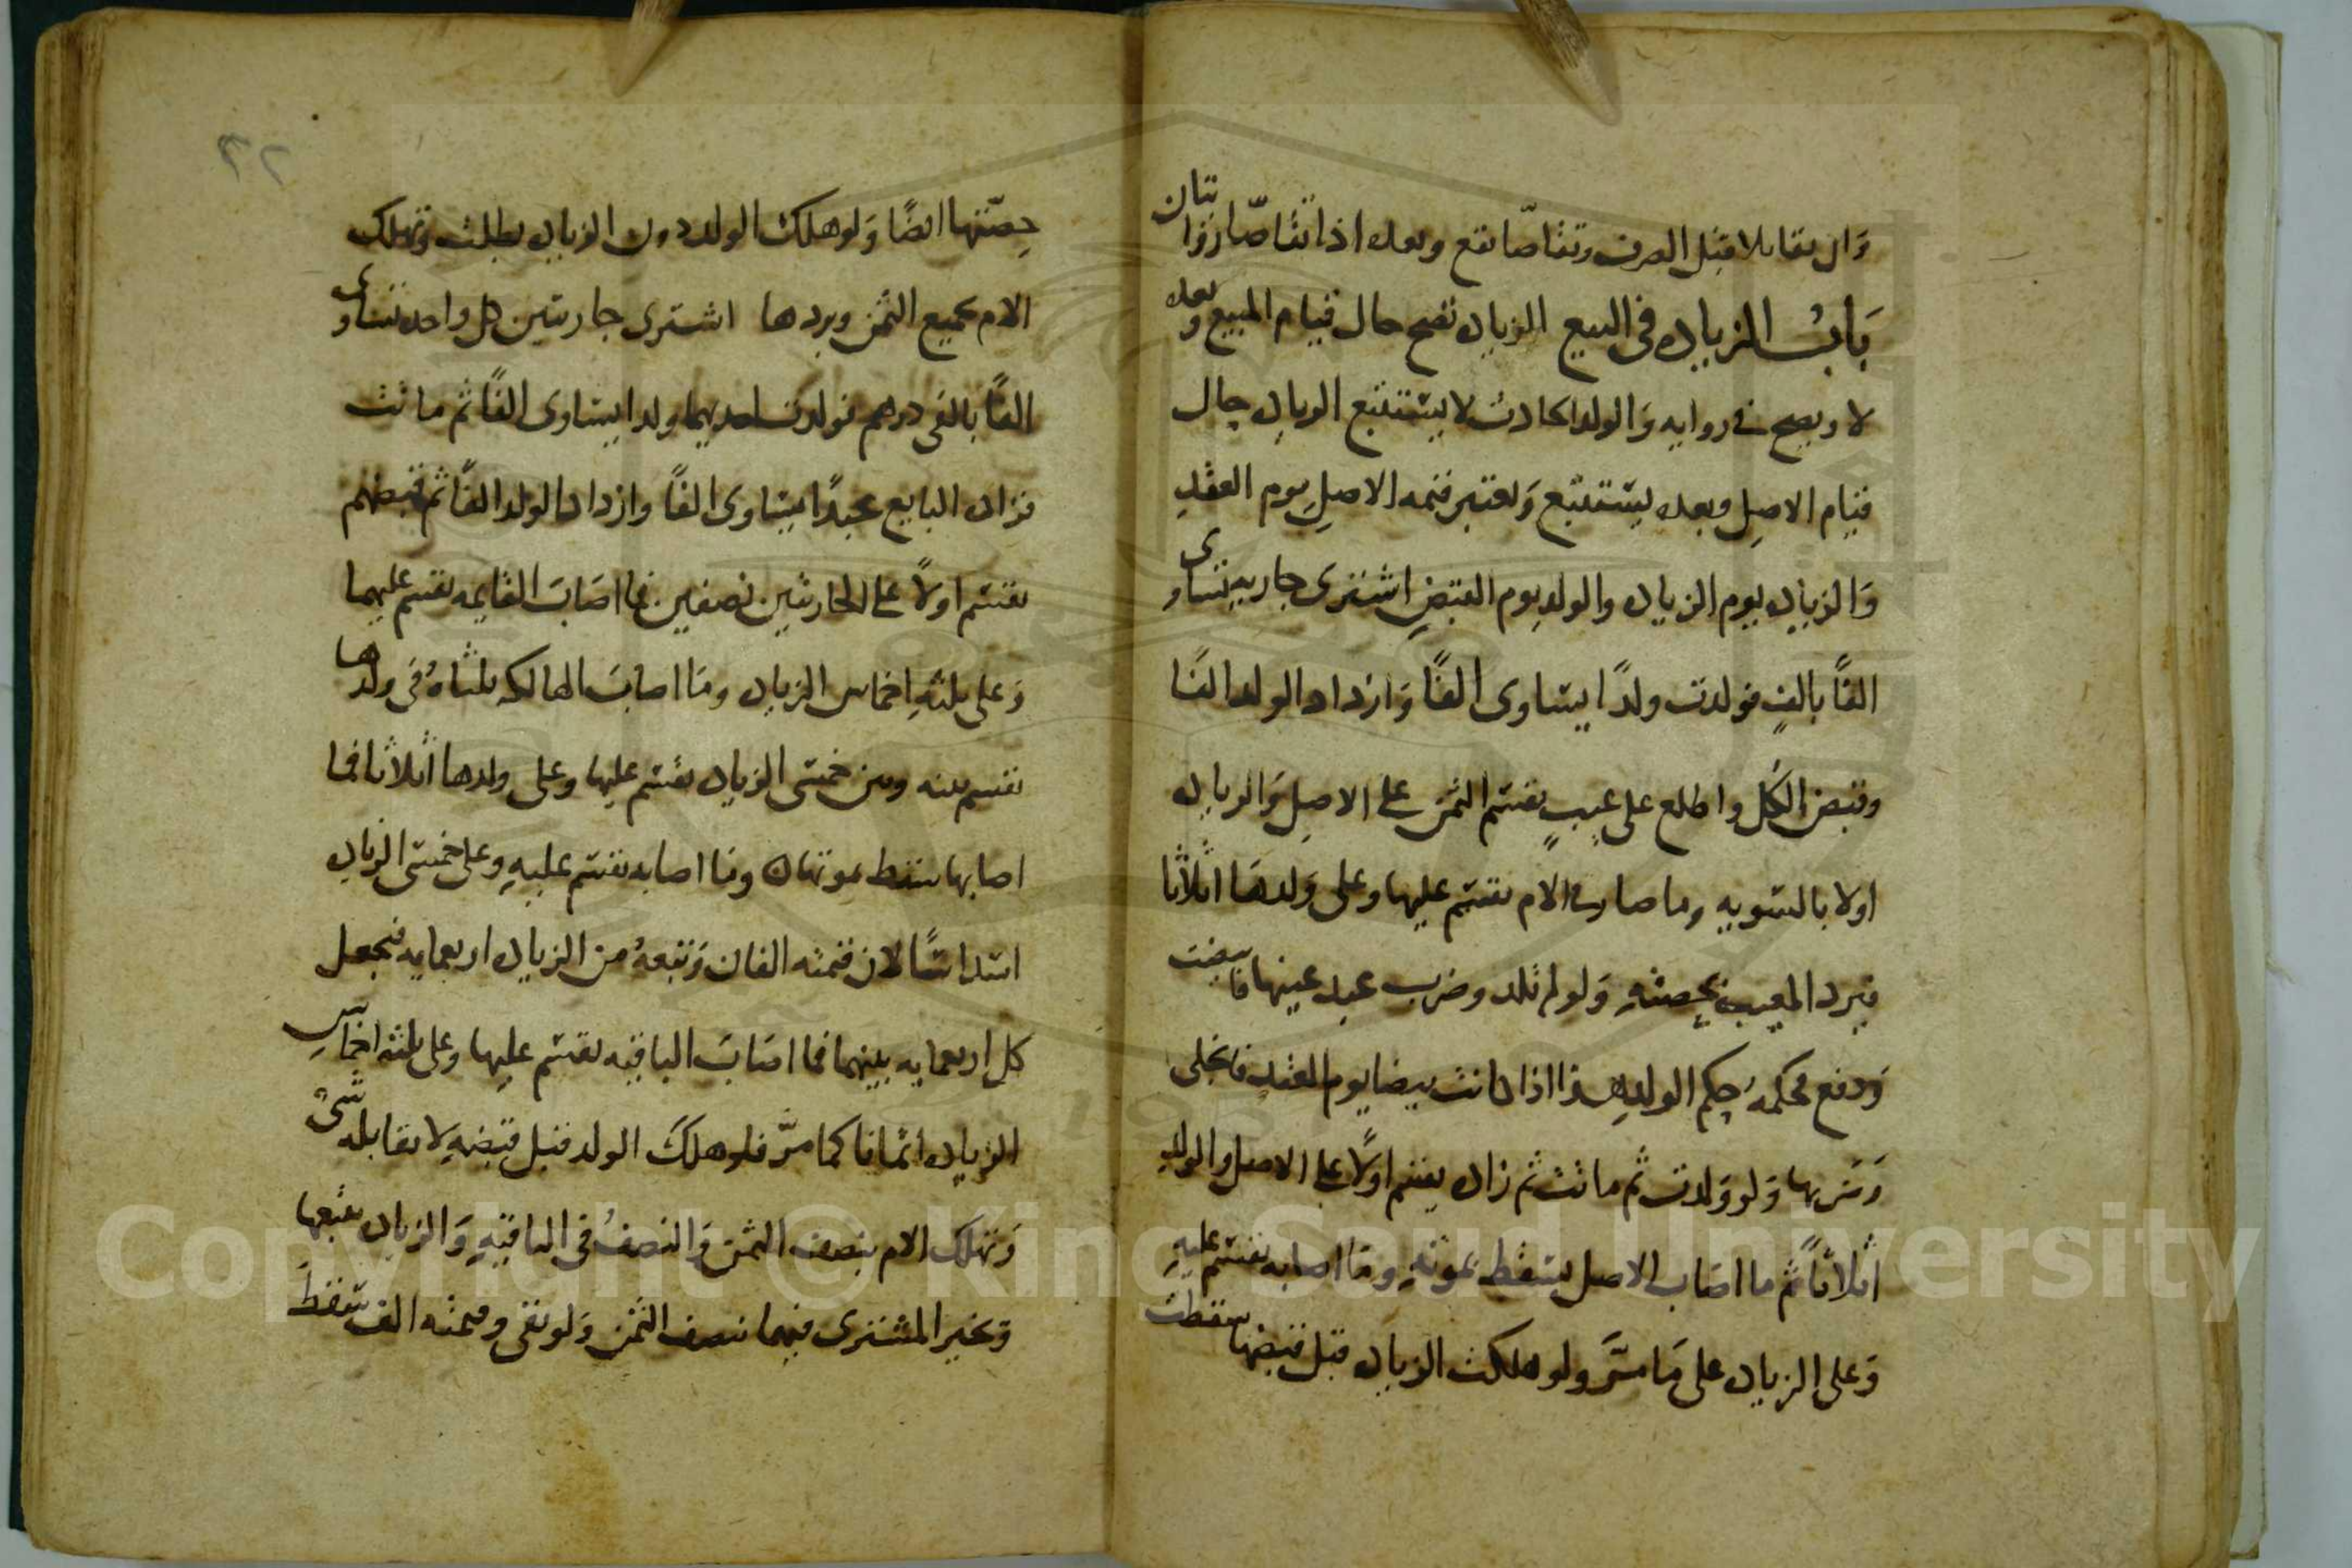 وان تقابلا قبل الصرف وتقاصا تقع وبعده اذا تقاصا روايتان
باب الزيادة في البيع الزيادة تصح حال قيام المبيع وبعده
لا ويصح في روايه والولد الحادث لا يستتبع الزيادة حال
قيام الاصل وبعده يستتبع وتعتبر قيمه الاصل يوم العقد
والزيادة يوم الزيادة والولد يوم القبض اشترى جاريه تساوى
الفًا بالف فولدت ولدًا يساوى الفًا وازداد الولد الفًا
وقبض الكل واطلع على عيب يقسم الثمن على الاصل والزيادة
اولا بالسويه وما صار الام يقسم عليها وعلى ولدها اثلاثا
فيرد المعيب بحصته ولو لم تلد وضرب عبد عينها فابيضت
ودفع فحكمه حكم الولد هذا اذا كانت بيضا يوم العقد فانجلى
بها ولو ولدت ثم ماتت ثم زاد يقسم اولًا على الاصل والولد
اثلاثًا ثم ما اصاب الاصل يسقط بموته وما اصابه يقسم عليه
وعلى الزيادة على ما مرّ ولو هلكت الزيادة قبل قبضها سقطت
حصّتها ايضًا ولو هلك الولد دون الزيادة بطلت وتهلك
الام بجميع الثمن ويردها اشترى جاريتين كل واحده تساوى
الفًا بالفى درهم فولدت احديهما ولدا يساوى الفًا ثم ماتت
فزاد البايع عبدًا يساوى الفًا وازداد الولد الفًا ثم قبضهم
يقسم اولًا على الجاريتين نصفين فما اصاب القايمه يقسم عليها
وعلى ثلثة اخماس الزيادة وما اصاب الهالكه ثلثاه في ولدها
تقسم بينه وبين خمسى الزيادة يقسم عليها وعلى ولدها اثلاثا فما
اصابها سقط بموتها وما اصابه يقسم عليه وعلى خمسى الزيادة
اسداسًا لان قيمته الفان وتبعهُ من الزيادة اربعمايه فيجعل
كل اربعمايه بينهما فما اصاب الباقيه يقسم عليها وعلى ثلثة اخماس
الزيادة اثمانا كما مرّ فلو هلك الولد قبل قبضه لا يقابله شىٔ
وتهلك الام بنصف الثمن والنصف في الباقيه والزيادة تتبعها
وتخير المشترى فيهما بنصف الثمن ولو بقى وقيمته الف سقط
٢٢
Copyright © King Saud University